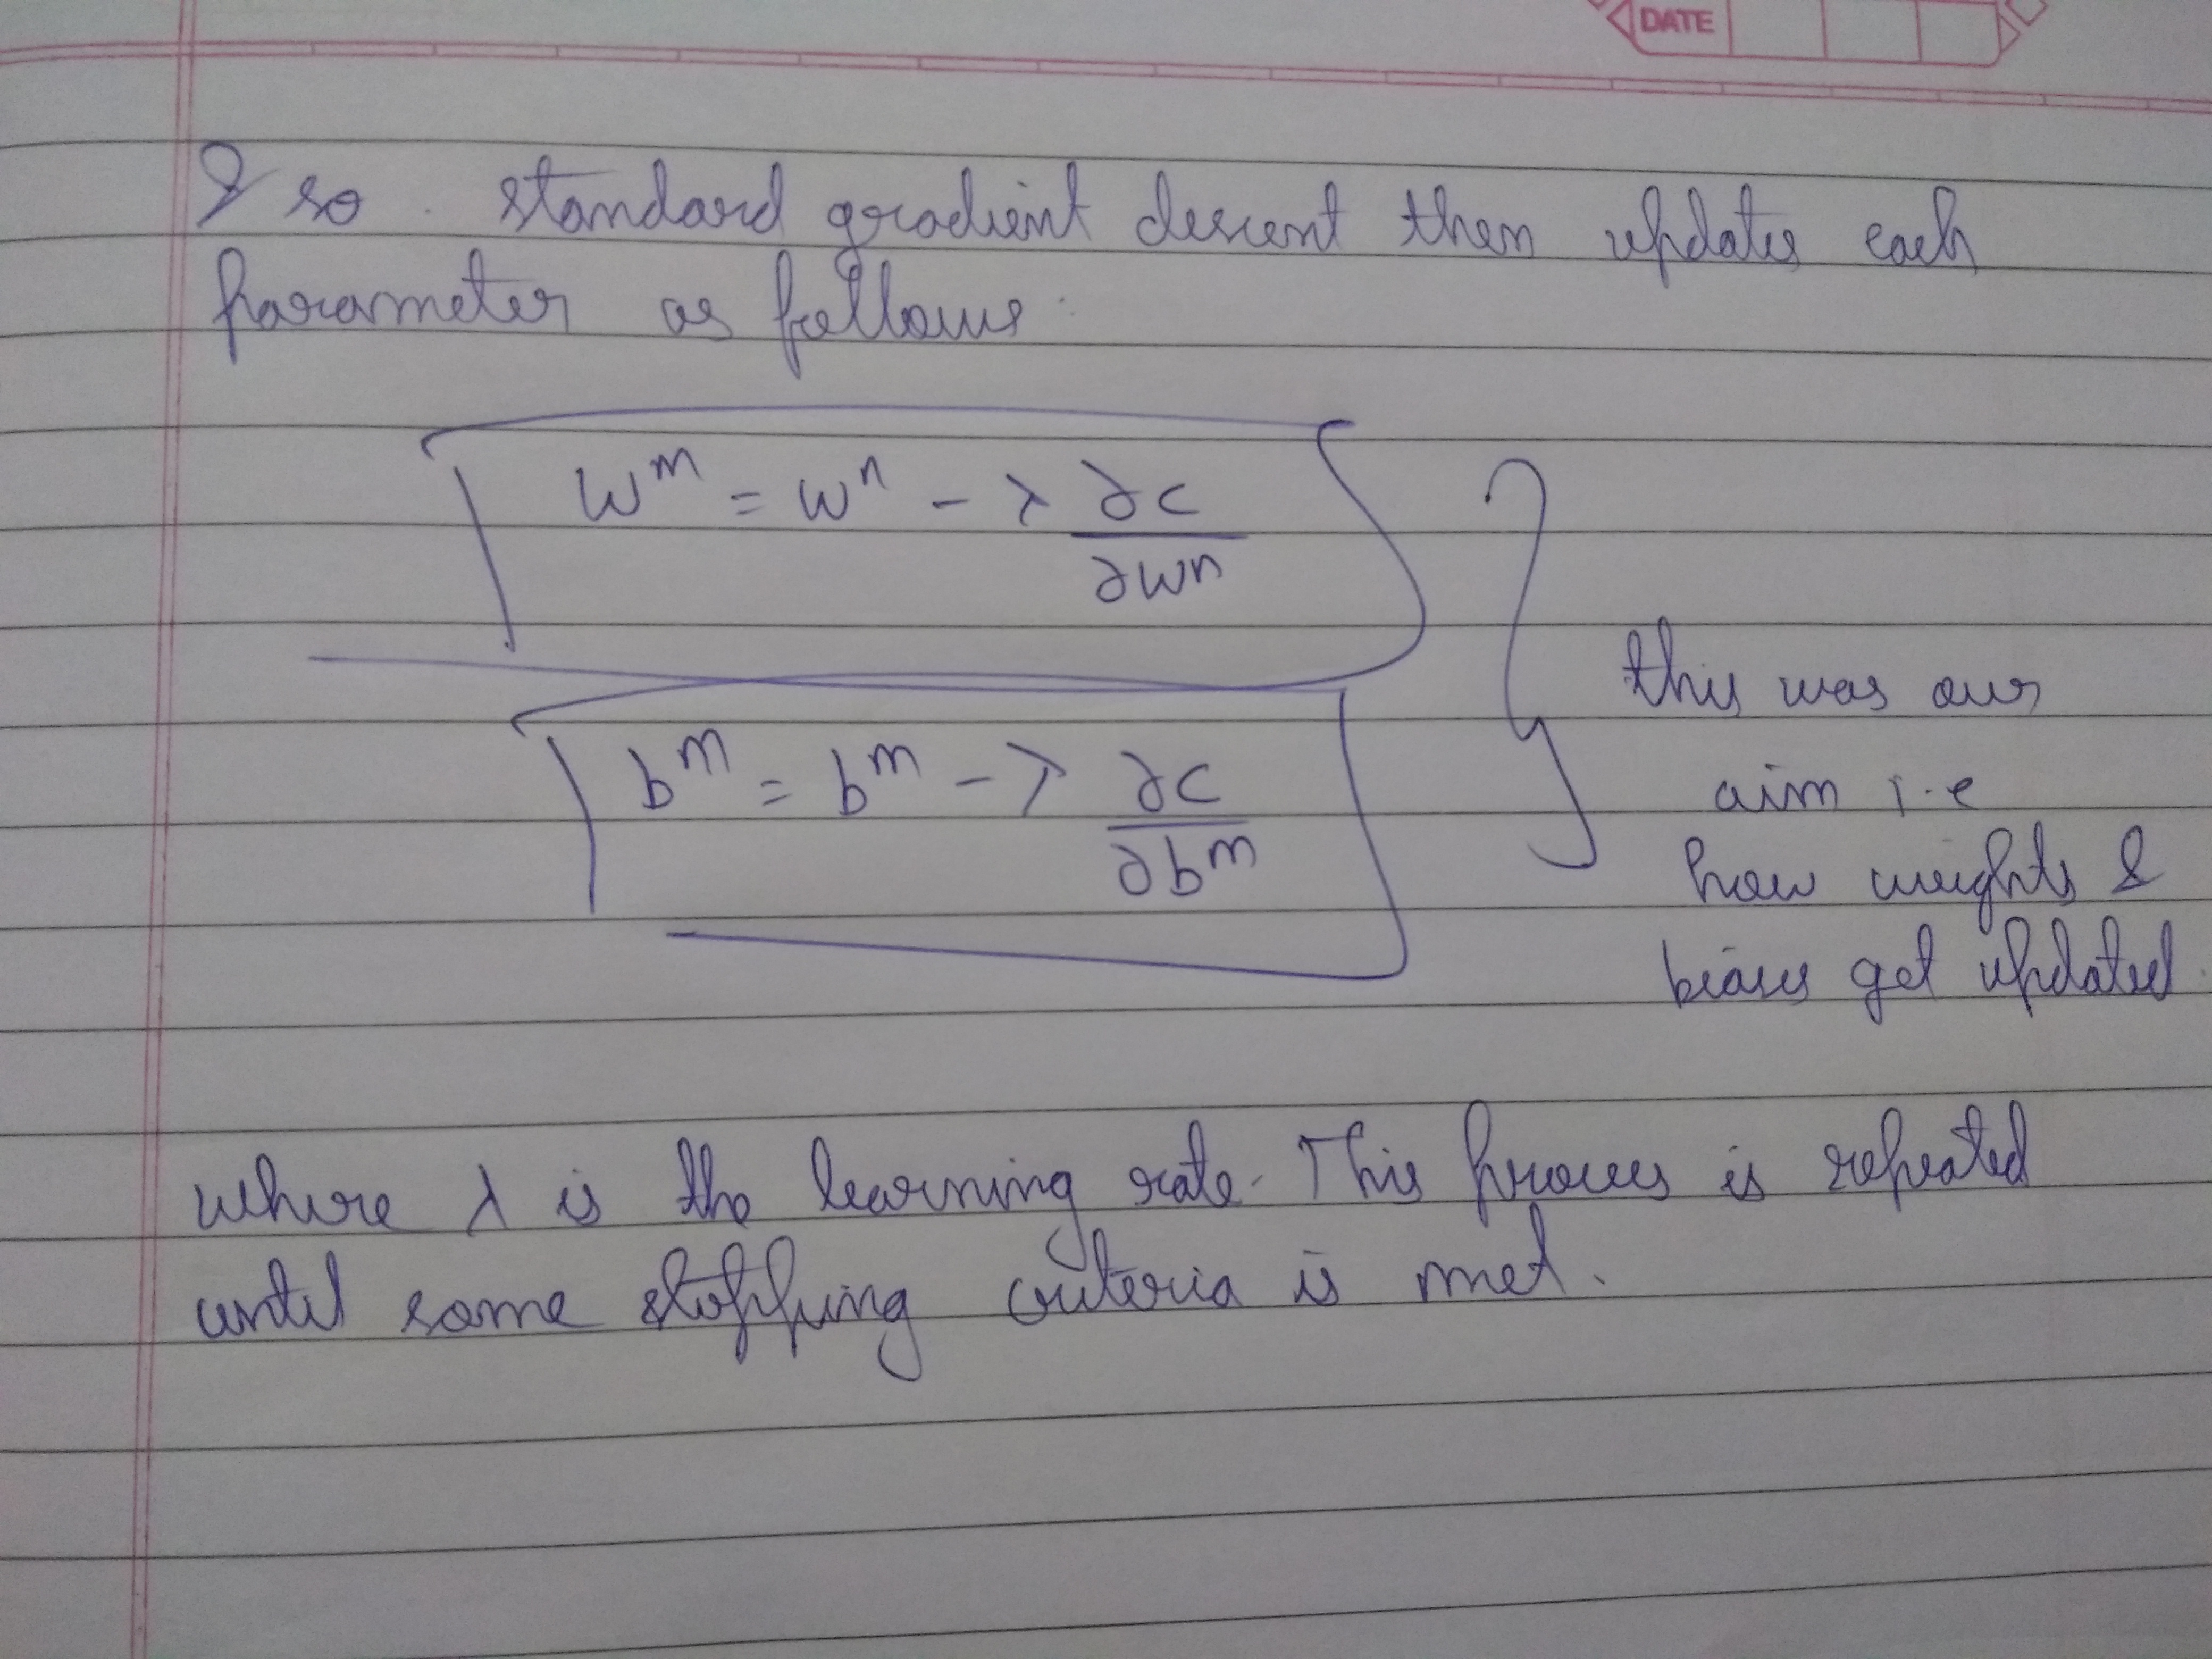 DATE
& so. standard gradient descent then updates each
parameter as follows.
w^m = w^n - λ ∂c/∂w^n
b^m = b^m - λ ∂c/∂b^m
this was our
aim i.e
how weights &
biases get updated.
where λ is the learning rate. This process is repeated
until some stopping criteria is met.